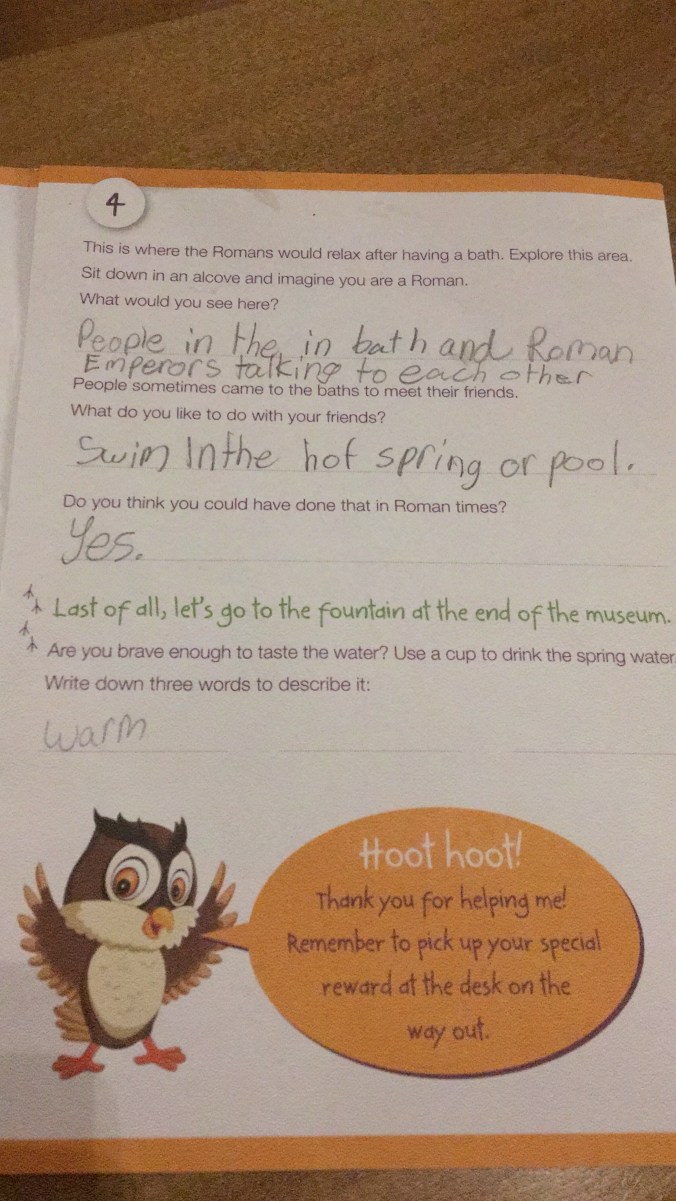 4
This is where the Romans would relax after having a bath. Explore this area.
Sit down in an alcove and imagine you are a Roman.
What would you see here?
People in the in bath and Roman
Emperors talking to each other
People sometimes came to the baths to meet their friends.
What do you like to do with your friends?
Swim In the hot spring or pool.
Do you think you could have done that in Roman times?
Yes.
Last of all, let's go to the fountain at the end of the museum.
Are you brave enough to taste the water? Use a cup to drink the spring water
Write down three words to describe it:
warm
Hoot hoot!
Thank you for helping me!
Remember to pick up your special
reward at the desk on the
way out.